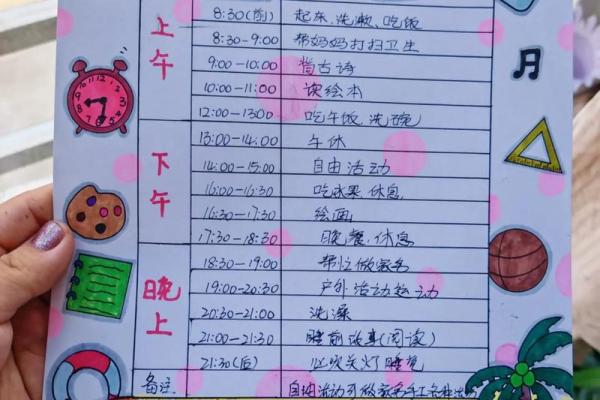 上午
8:30(前) 起床、洗漱、吃饭
8:30-9:00 帮妈妈打扫卫生
9:00-10:00 背古诗
10:00-11:00 读绘本
12:00-1300 吃午饭、洗碗
下午
13:00-14:00 午休
14:00-15:00 自由活动
16:00-16:30 吃水果、休息
16:30-17:30 绘画
17:30-18:30 晚餐、休息
晚上
18:30-19:00 帮忙做家务
19:00-20:30 户外活动运动
20:30-21:00 洗澡
21:00-21:30 睡前故事(阅读)
21:30(后) 关灯睡觉
备注: 自由活动可做家务手工
月